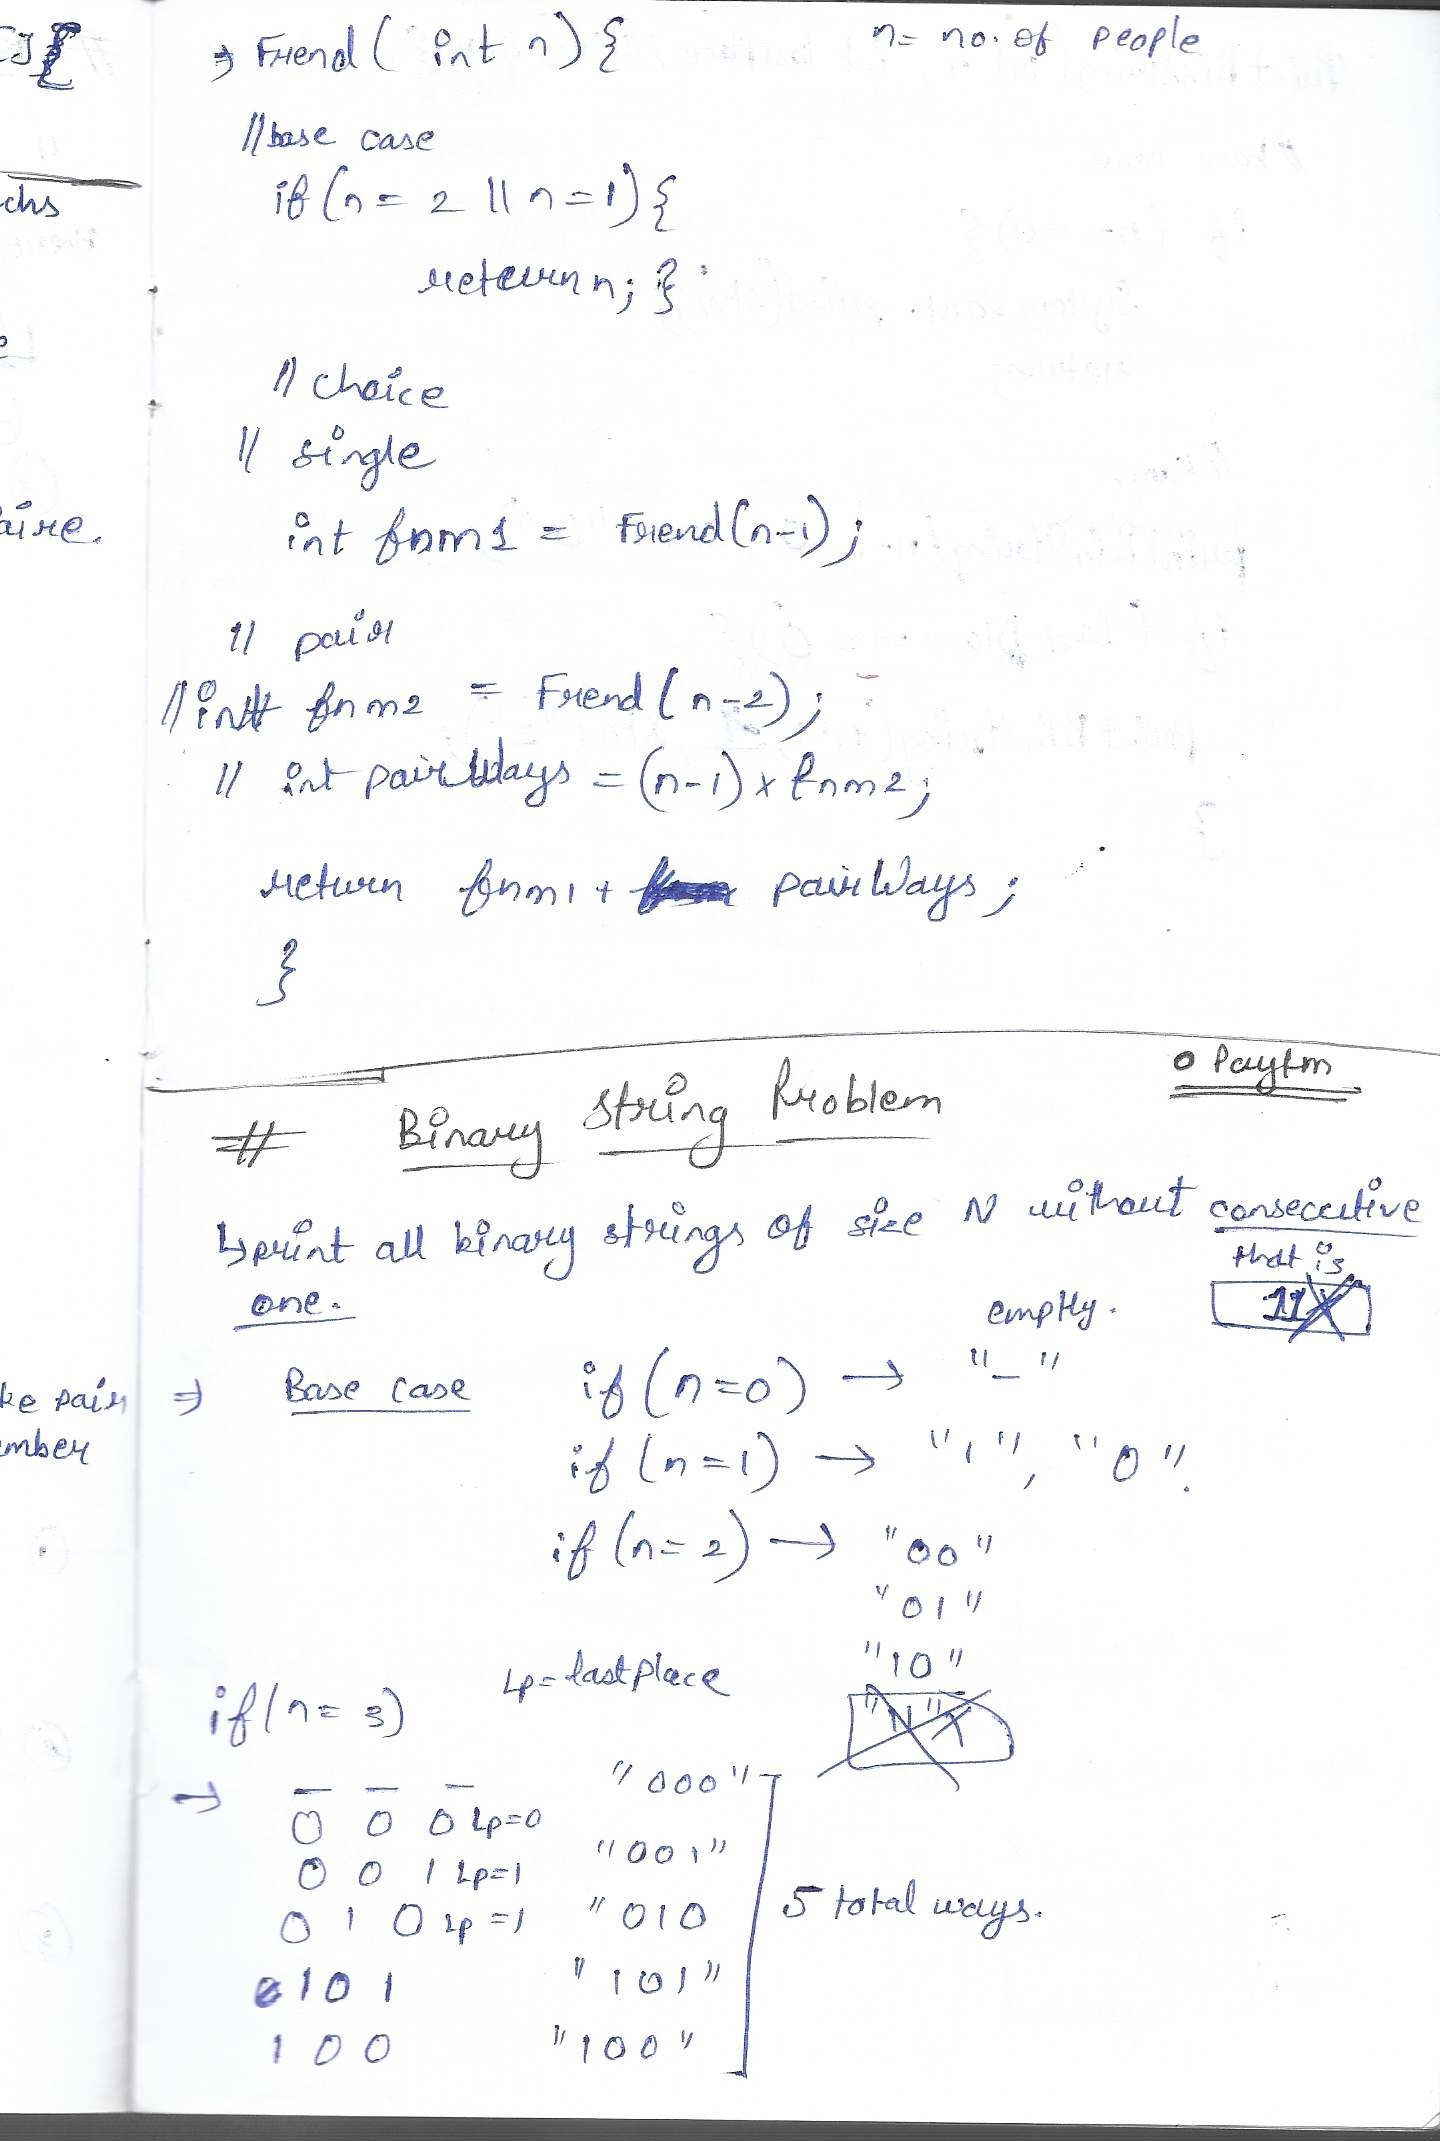 CJ{
→ Friend ( int n ) {
n = no. of people
// base case
if (n = 2 || n = 1) {
chs
return n; }
// choice
// single
aire.
int fnm1 = Friend(n-1);
// pair
// int fnm2 = Friend(n-2);
// int pairWays = (n-1) x fnm2;
return fnm1 + pairWays;
}
o Paytm
# Binary String Problem
↳ print all binary strings of size N without consecutive
one.
that is
11 X
empty.
ke pair
mber
⇒ Base case if (n=0) → "_"
if (n=1) → "1", "0".
if (n=2) → "00"
"01"
"10"
"11" X
if (n = 3)
Lp = last place
→ _ _ _ "000"
0 0 0 Lp=0
0 0 1 Lp=1 "001"
0 1 0 Lp=1 "010
5 total ways.
1 0 1 "101"
1 0 0 "100"